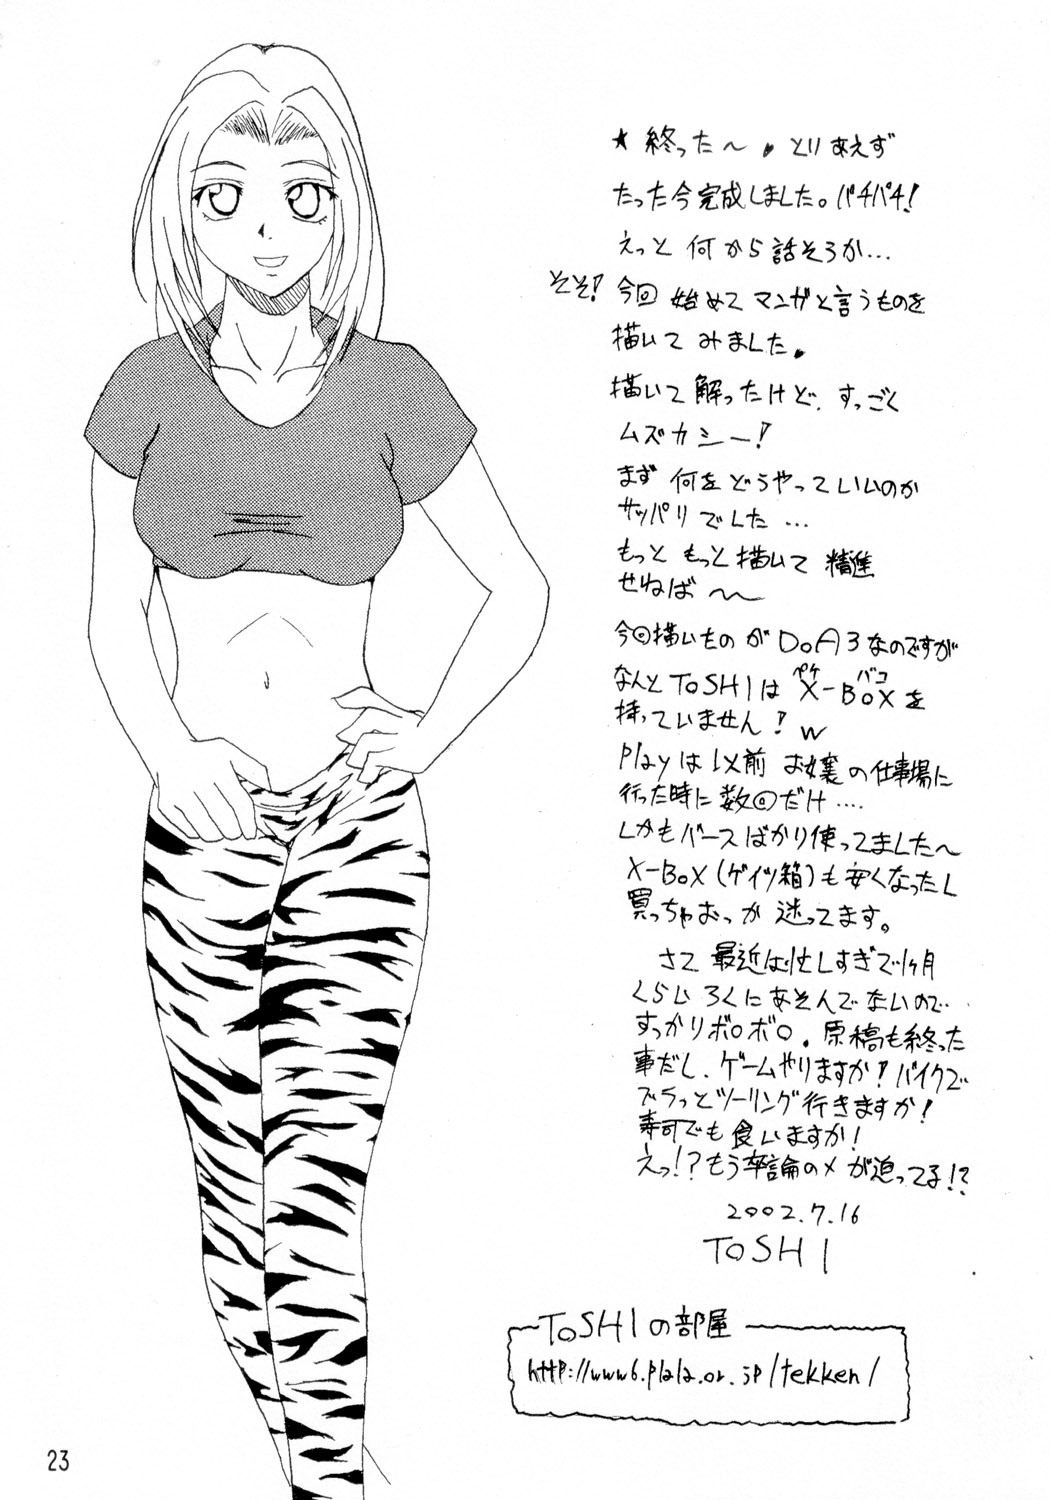 ★終った〜. とりあえず
たった今完成しました。パチパチ!
えっと 何から話そうか...
そそ! 今回 始めて マンガと言うものを
描いて みました.
描いて解ったけど、すっごく
ムズカシー!
まず 何を どうやっていいのか
サッパリでした ...
もっと もっと描いて 精進
せねば 〜〜
今回描いたものがDoA3なのですが
なんとToSHIは X-BoXを
ペケ バコ
持っていません! w
Playは以前 お嬢の仕事場に
行った時に数回だけ ....
しかもバースばかり使ってました〜
X-BoX(ゲイツ箱)も安くなったし
買っちゃおっか 迷ってます。
さて 最近は忙しすぎで1ヶ月
くらい ろくにあそんでないので
すっかりボロボロ. 原稿も終った
事だし、ゲームやりますか!バイクで
ブラっとツーリング行きますか!
寿司でも食いますか!
えっ!?もう卒論の〆が迫ってる!?
2002.7.16
ToSHI
ToSHIの部屋
http://www6.plala.or.jp/tekken/
23